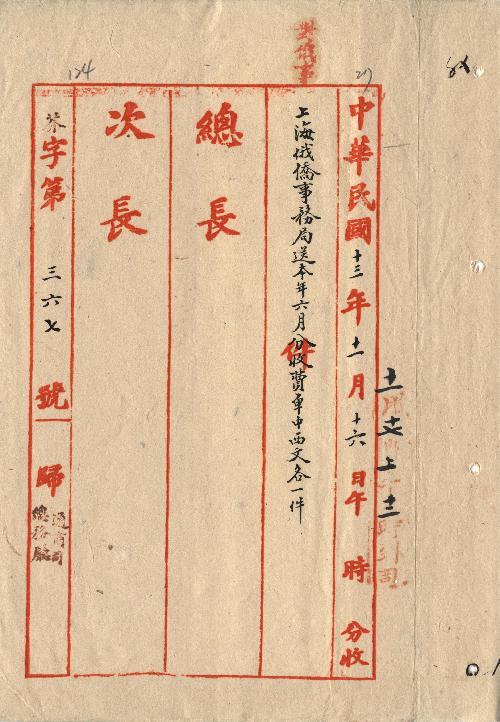 中華民國十三年十一月十六日午 時 分收
件
上海俄僑事務局送本年六月分收費單中西文各一件
總長
次長
字第三六七號歸
通商司
總務廳
十一 十七 上 十二
184